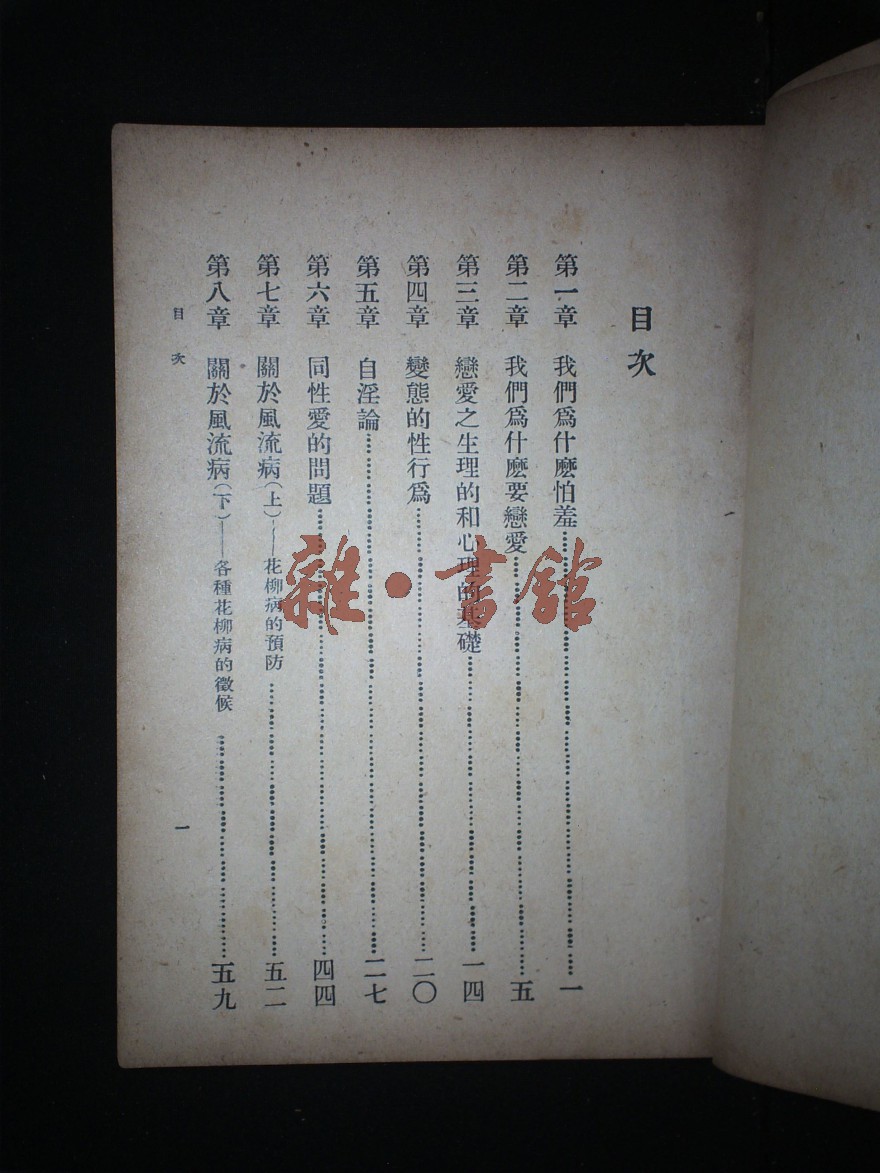 目次
第一章　我們爲什麽怕羞……一
第二章　我們爲什麽要戀愛……五
第三章　戀愛之生理的和心理的基礎……一四
第四章　變態的性行爲……二〇
第五章　自淫論……二七
第六章　同性愛的問題……四四
第七章　關於風流病(上)——花柳病的預防……五二
第八章　關於風流病(下)——各種花柳病的徵候……五九
目次
一
雜·書館